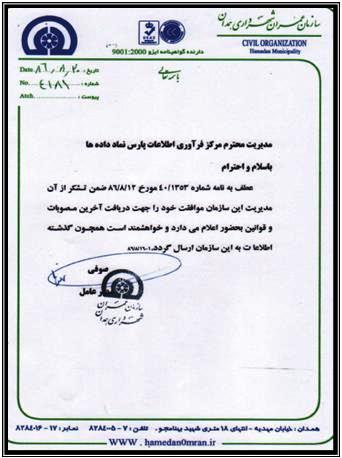 سازمان عمران شهرداری همدان
CIVIL ORGANIZATION
Hamedan Municipality
دارنده گواهینامه ایزو 9001:2000
تاریخ: ۸۶/۸/۲۰ Date
شماره: ۴۱۸۱ No.
پیوست: Atch.
باسمه تعالی
مدیریت محترم مرکز فرآوری اطلاعات پارس نماد داده ها
باسلام و احترام
عطف به نامه شماره ۴۰/۱۳۵۳ مورخ ۸۶/۸/۱۲ ضمن تشکر از آن
مدیریت این سازمان موافقت خود را جهت دریافت آخرین مصوبات
و قوانین بحضور اعلام می دارد و خواهشمند است همچون گذشته
اطلاعات به این سازمان ارسال گردد.
صوفی
مدیر عامل
سازمان عمران
شهرداری همدان
همدان: خیابان مهدیه - انتهای ۱۸ متری شهید بینامجو. تلفن: ۷-۸۲۸۴۰۰۵ نمابر: ۱۷-۸۲۸۴۰۱۶
WWW.hamedanOmran.ir